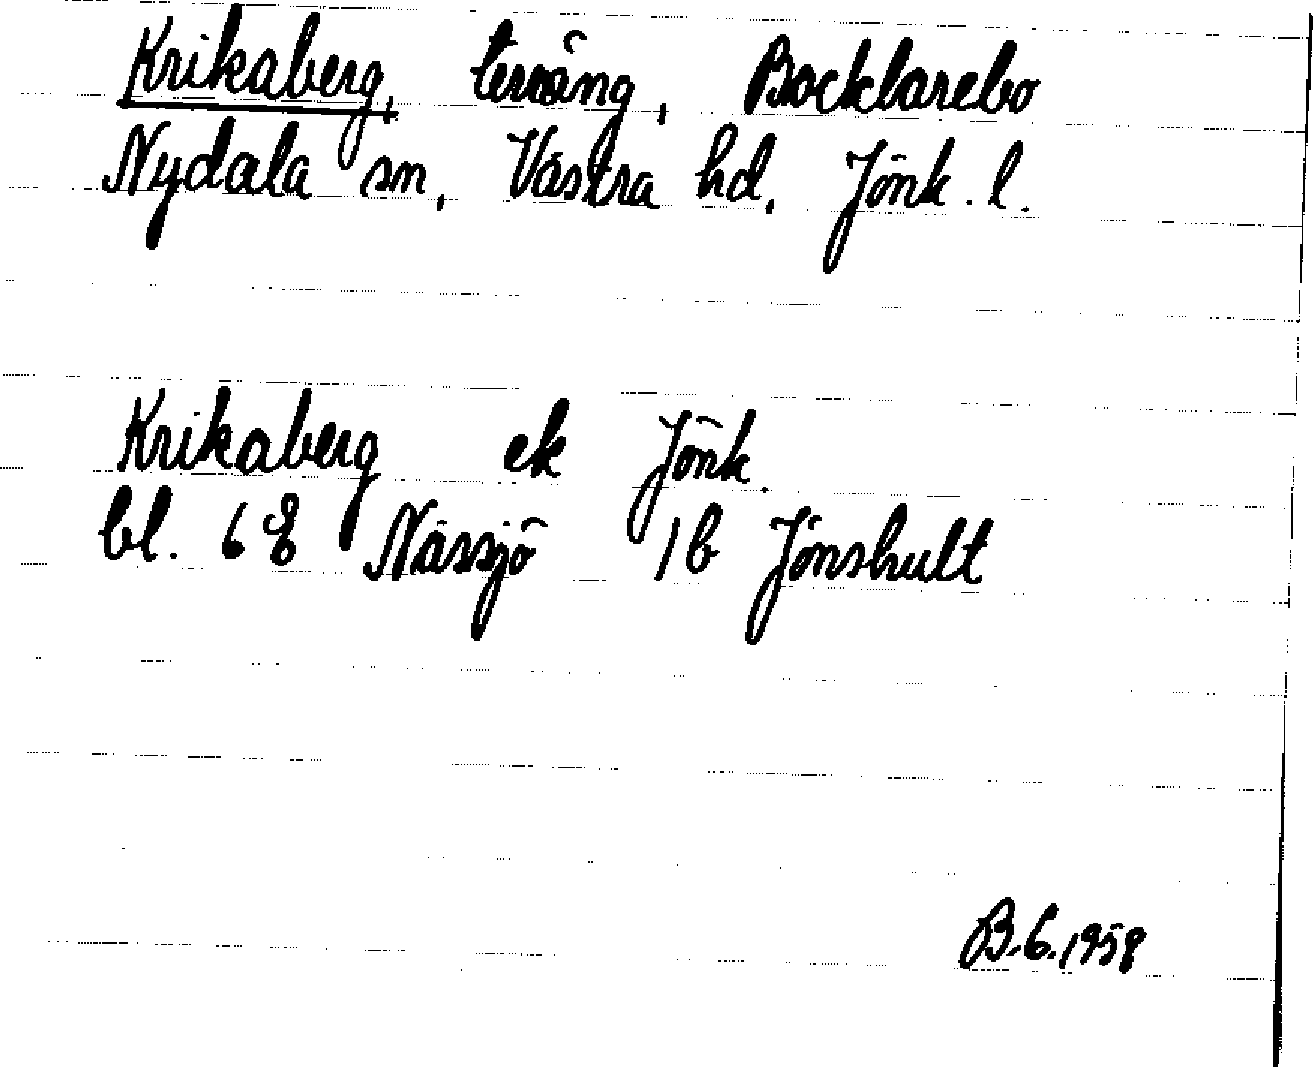 Krikaberg, terräng, Bocklarebo
Nydala sn, Västra hd, Jönk. l.
Krikaberg ek Jönk.
bl. 6 E Nässjö 1 b Jönshult
B.G. 1958